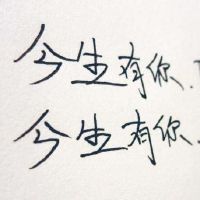 今生有你.
今生有你.